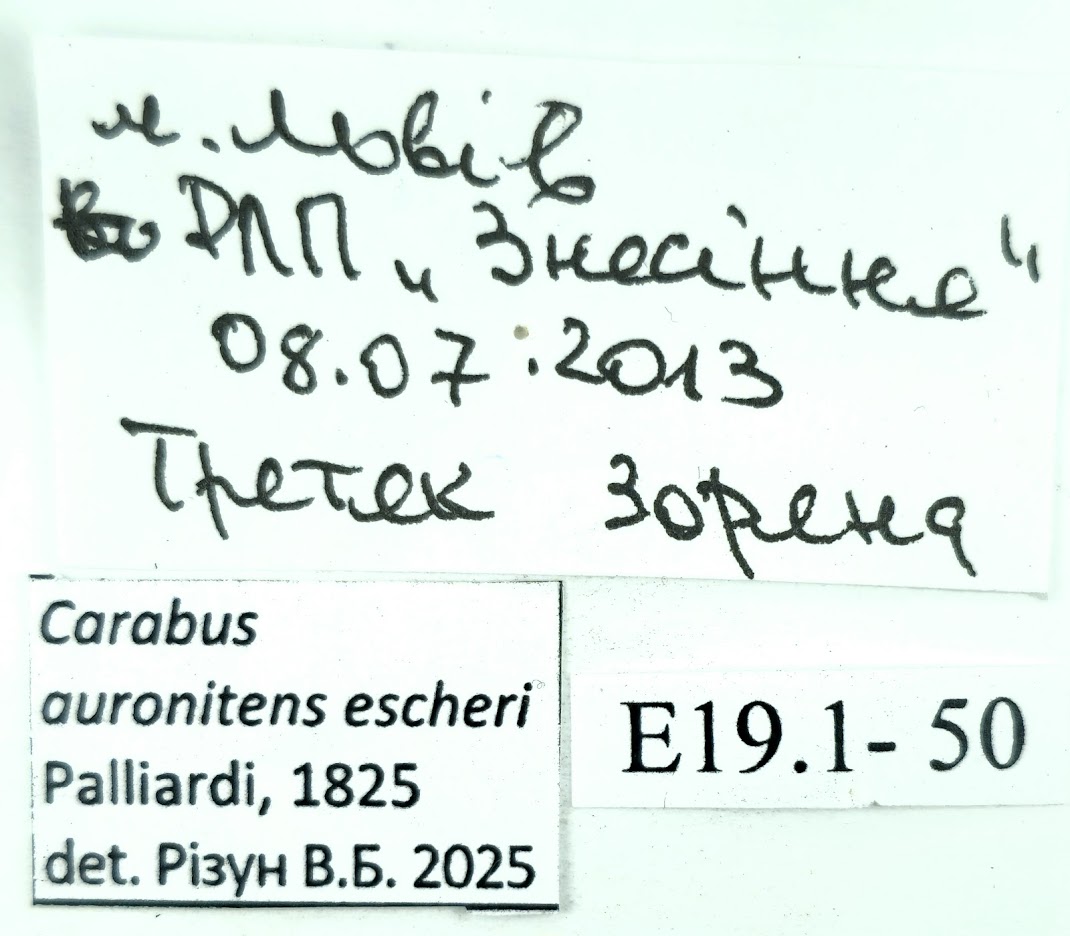 м. Львів
РЛП „Знесіння"
08.07.2013
Третяк Зоряна
Carabus
auronitens escheri
Palliardi, 1825
det. Різун В.Б. 2025
E19.1- 50